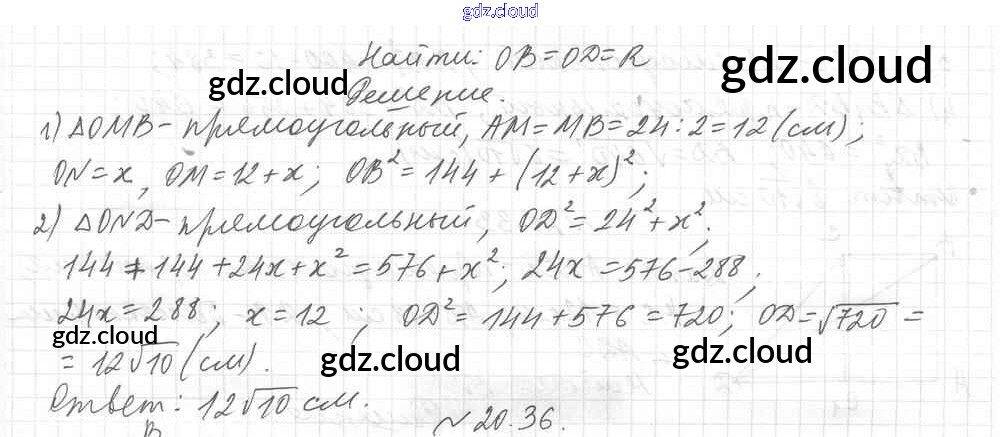 gdz.cloud
Найти: OB=OD=R
gdz.cloud
gdz.cloud
Решение.
1) ΔOMB - прямоугольный, AM=MB=24:2=12 (см);
ON=x, OM=12+x; OB²=144+(12+x)²;
2) ΔOND - прямоугольный, OD²=24²+x²;
144+144+24x+x²=576+x²; 24x=576-288;
24x=288; x=12; OD²=144+576=720; OD=√720=
gdz.cloud
gdz.cloud
gdz.cloud
=12√10 (см).
Ответ: 12√10 см.
B
№20.36.